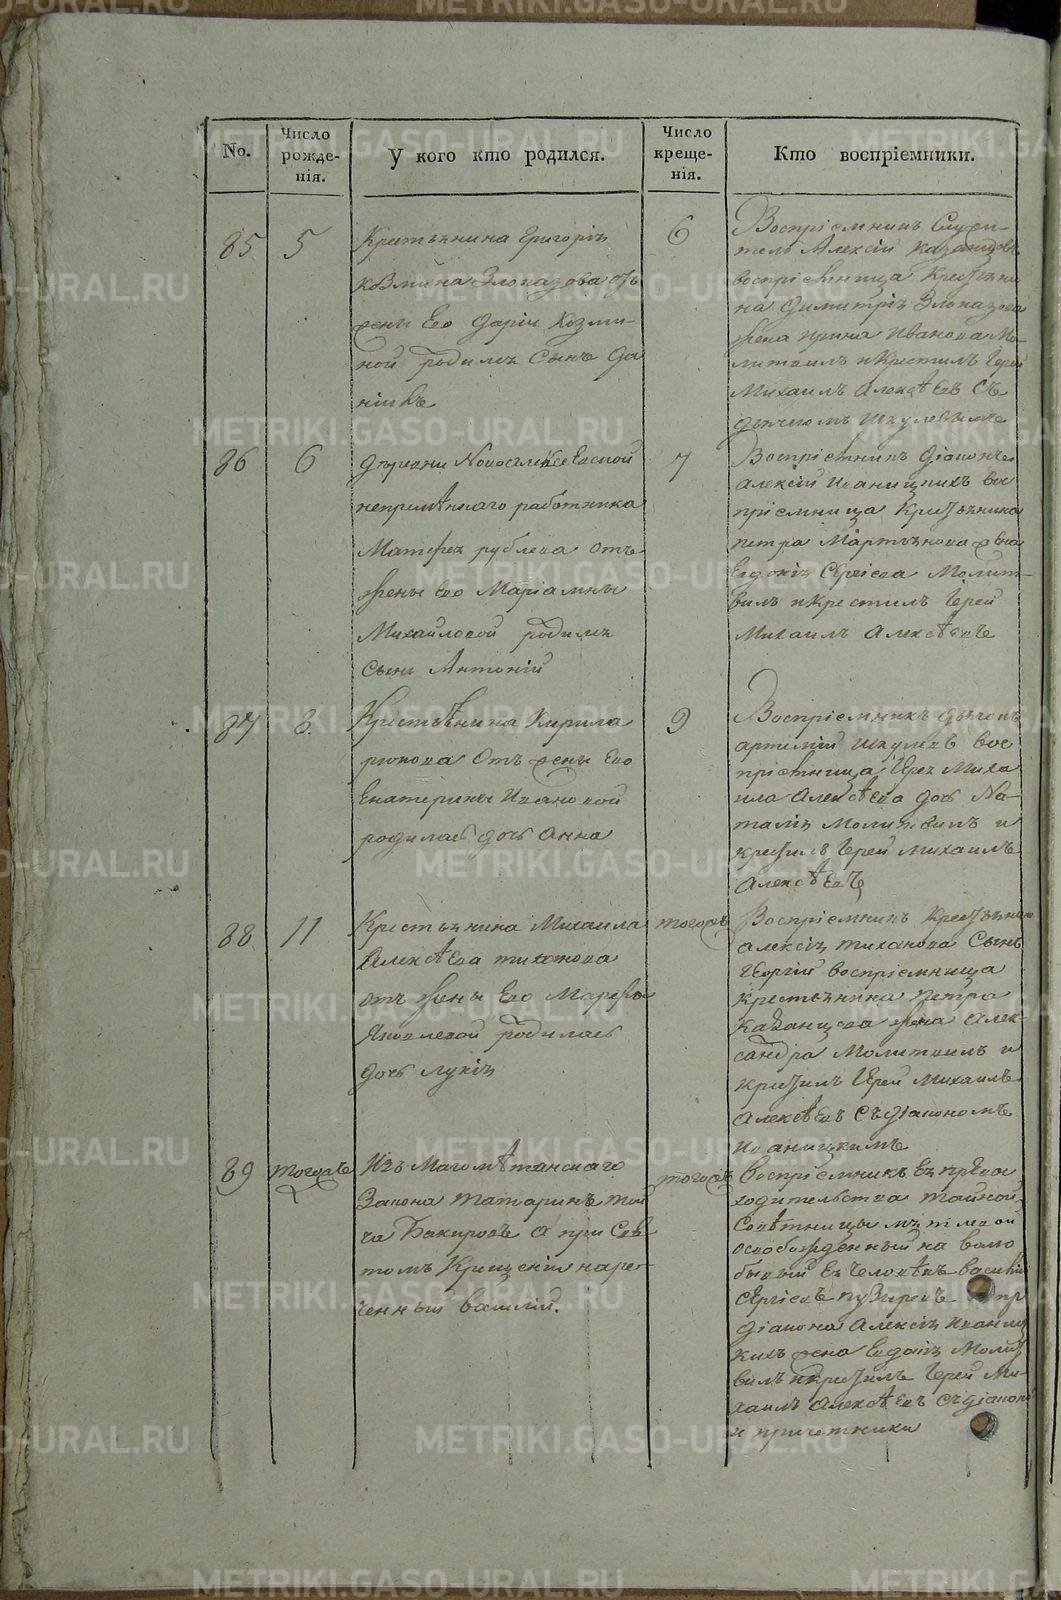 No.
Число рожденія.
У кого кто родился.
Число крещенія.
Кто воспріемники.
85
5
Григорія
козмина Злоказова отъ
жены Его Даріи Козми-
ной родился Сынъ Да
ніилъ
6
Воспріемникъ Служи-
тель Алексій
воспріемница
на Димитрія Злоказова
жена Ирина Иванова Мо-
литвилъ и Крестилъ Іерей
Михаилъ Алексѣевъ Съ
дьячкомъ Шкулевымъ
86
6
Деревни Новоалексеевской
непремѣннаго работника
Матфея рублева отъ
жены Его Маріамны
Михайловой родился
Сынъ Антоній
7
Воспріемникъ діаконъ
Алексій Иваницкихъ вос
пріемница
петра Мартьянова жена
Евдокія Сергіева Молит-
вилъ и Крестилъ Іерей
Михаилъ Алексѣевъ
87
8
Крестьянина Кирила
рюкова Отъ жены Его
Екатерины Ивановой
родилась дочь Анна
9
Воспріемникъ дьячокъ
артемій Шкулевъ вос
пріемница Іерея Миха
ила Алексѣева дочь На-
талія Молитвилъ и
крестилъ Іерей Михаилъ
Алексѣевъ
88
11
Крестьянина Михаила
Алексѣева тиханова
отъ жены Его Марфы
Яковлевой родилась
дочь Лукія
тогожъ
Воспріемникъ
алексія тиханова Сынъ
Георгій воспріемница
крестьянина петра
Казанцева жена Алек-
сандра Молитвилъ и
крестилъ Іерей Михаилъ
Алексѣевъ Съ діакономъ
Иваницкимъ
89
тогожъ
Изъ Магометанскаго
Закона татаринъ
Бакировъ А при Свя
томъ Крещеніи наре-
ченный василій.
тогожъ
воспріемникъ Ея прево
ходительства тайной
Совѣтницы
освобожденный на волю
бывый Ея Человѣкъ василій
Сергіевъ пузыревъ
діакона Алексія Иваниц
кихъ жена Евдокія Молит
вилъ и крестилъ Іерей Ми-
хаилъ Алексѣевъ Съ діакономъ
и причетники
METRIKI.GASO-URAL.RU